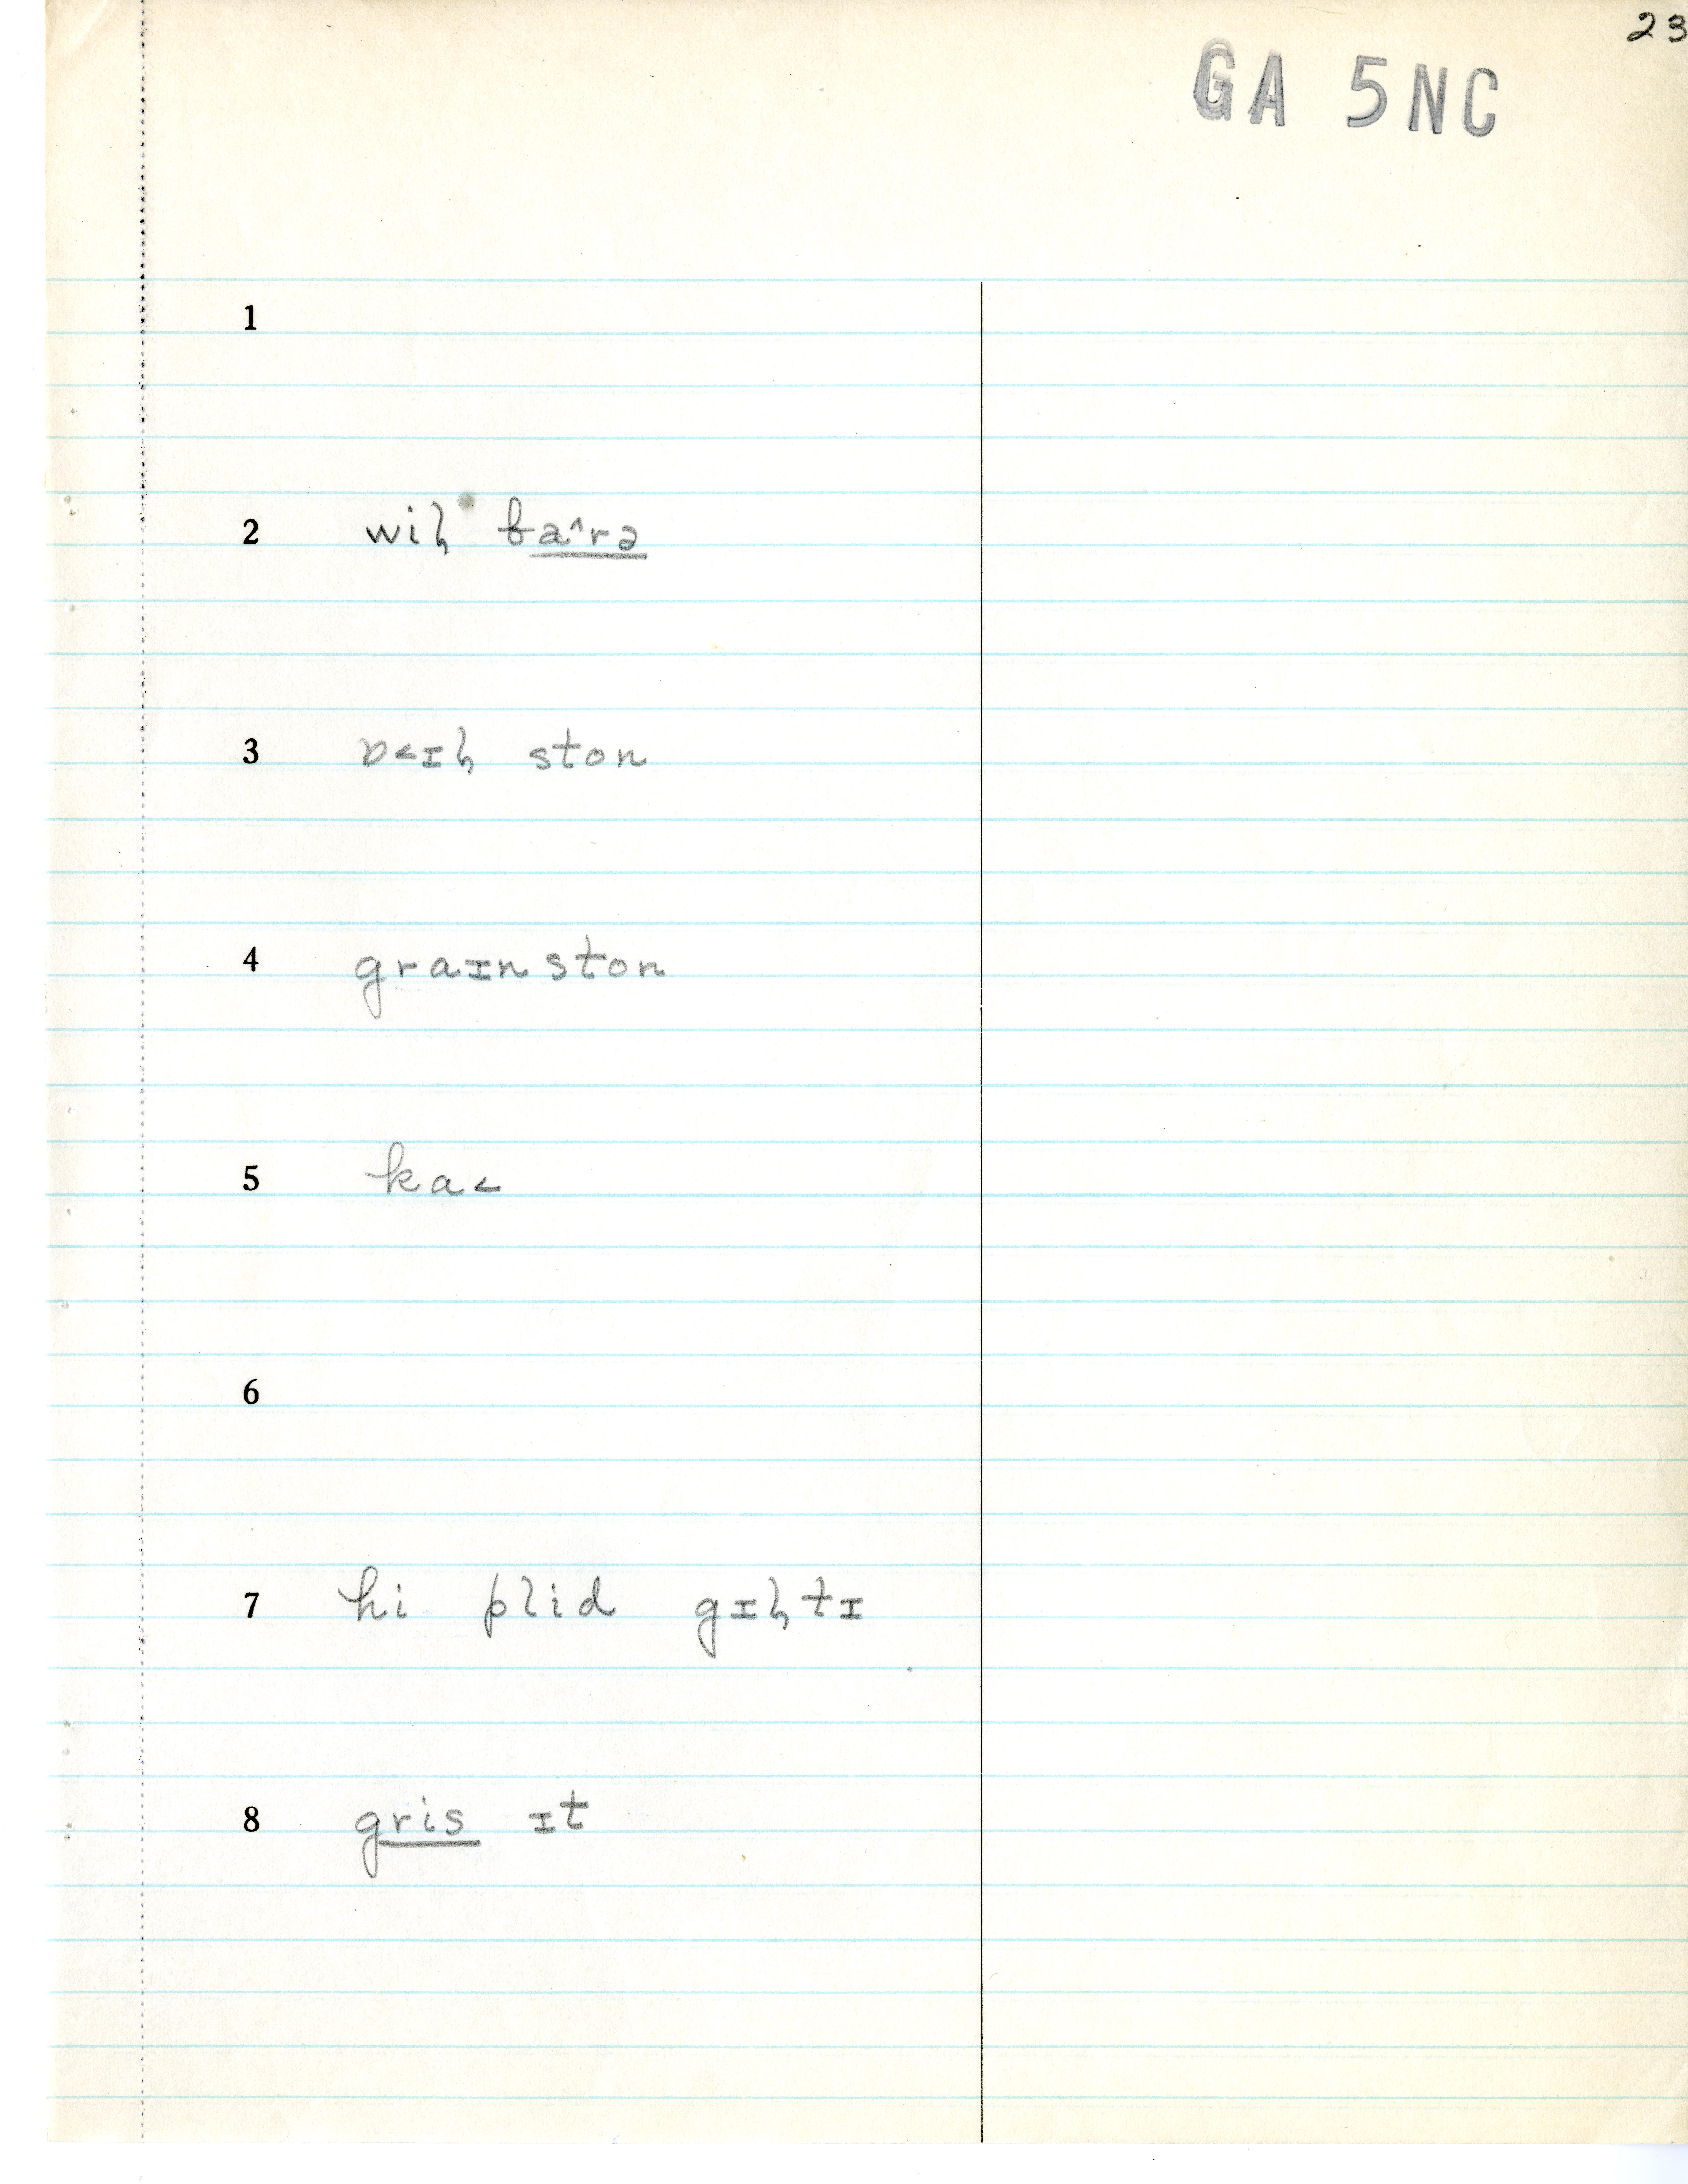 23
GA 5NC
1
2 wiɭ ba^rə
3 ɒ<ɪɭ ston
4 graɪnston
5 ka<
6
7 hi plid gɪɭtɪ
8 gris ɪt